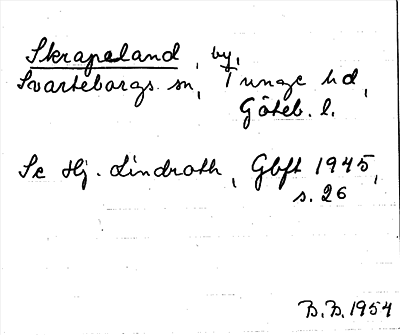 Skrapeland, by,
Svarteborgs sn, Tunge hd,
Göteb. l.
Se Hj. Lindroth, Gbft 1945,
s. 26
B.B. 1954